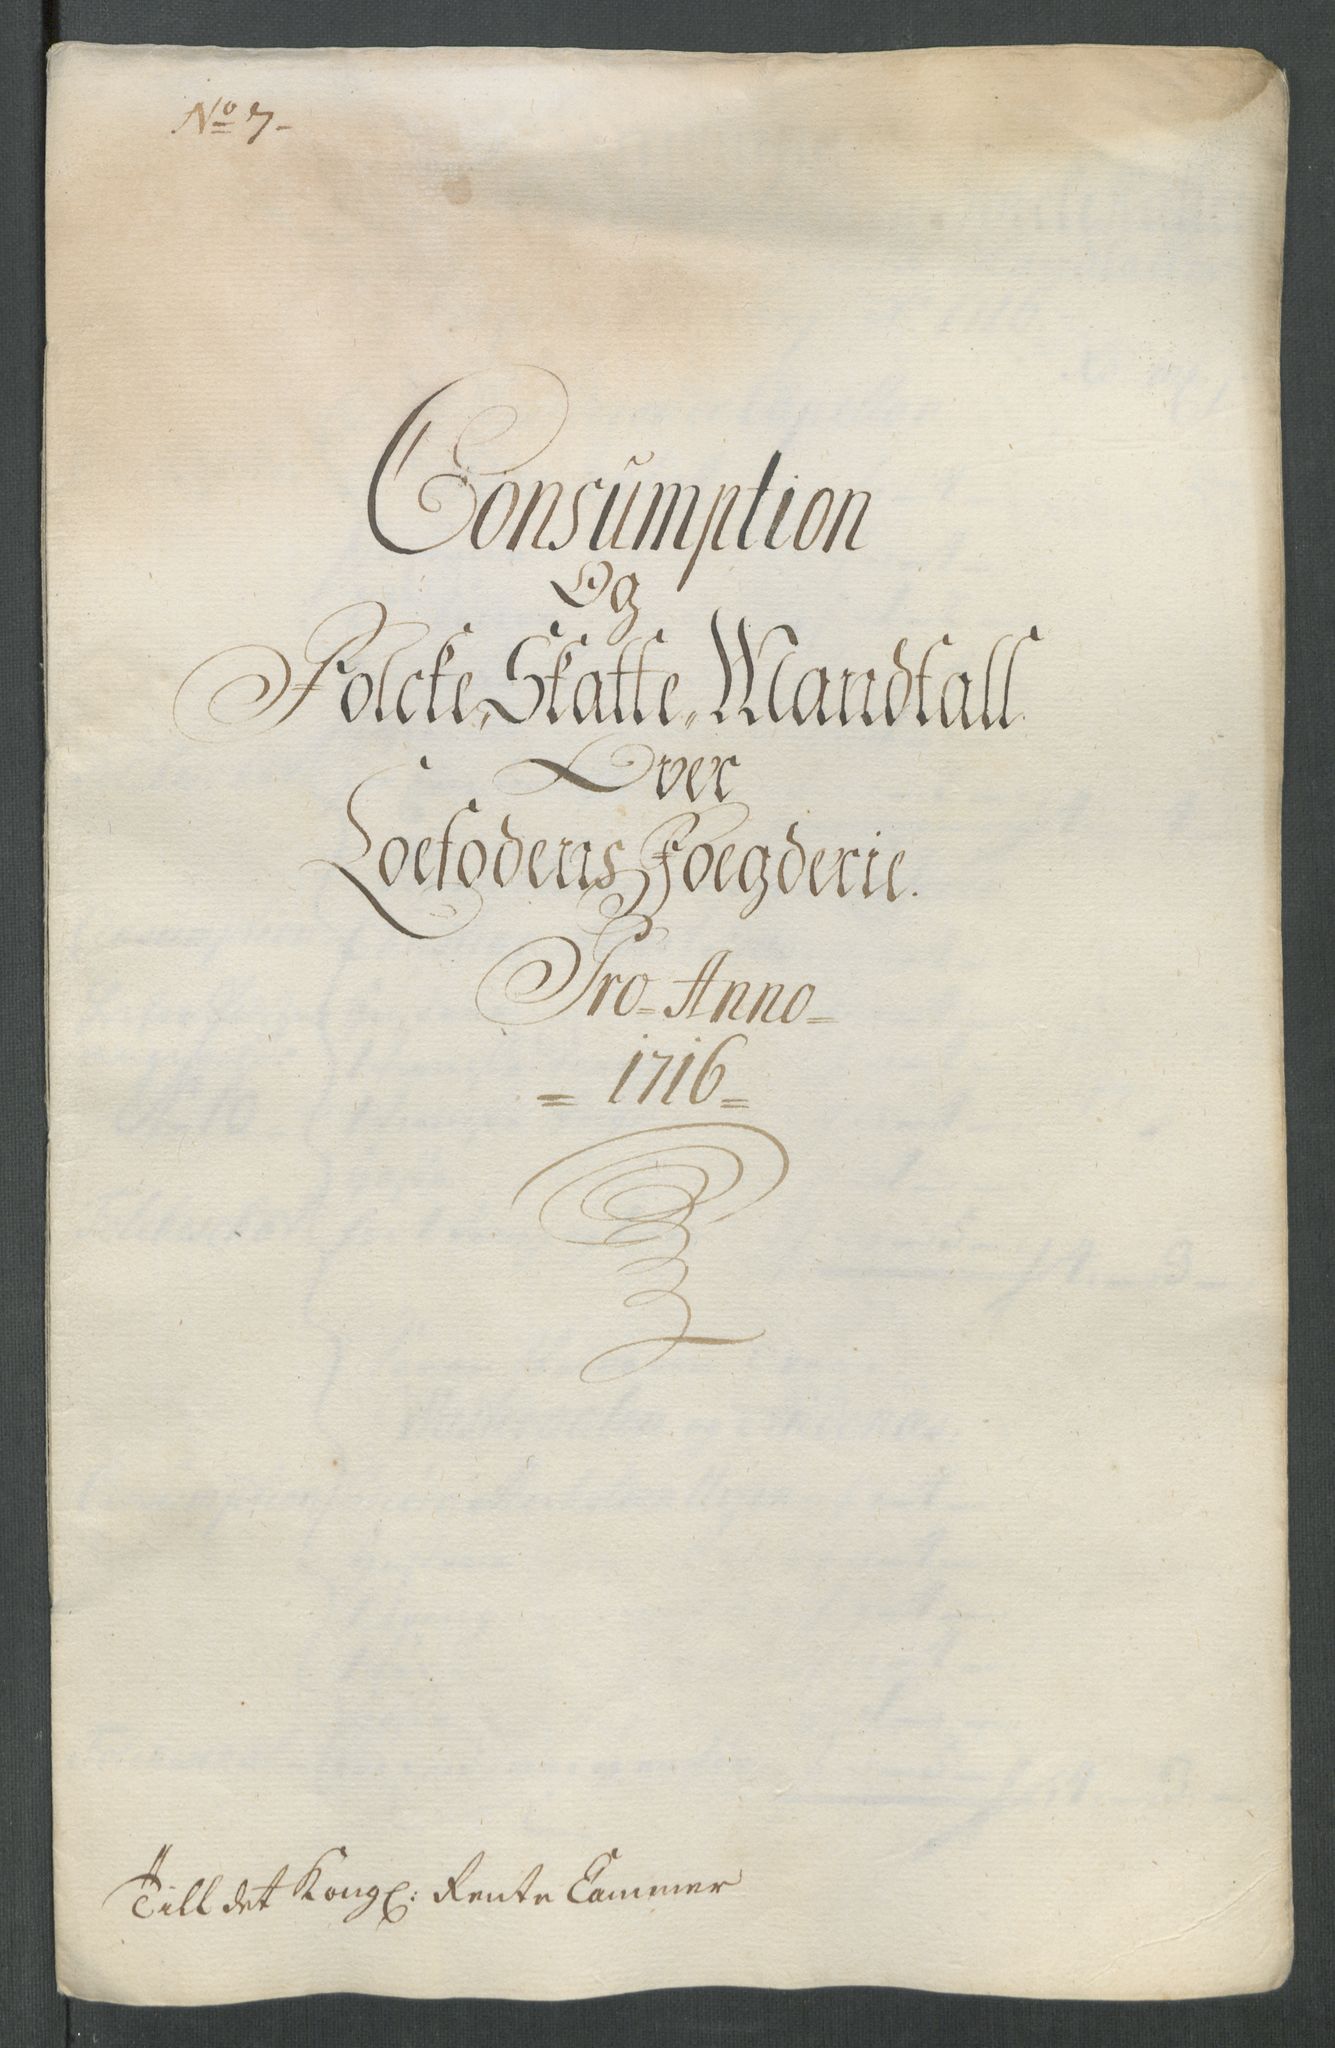 No 7-
Consumption
Og
Folcke, Skatte, Mandtall
Over
Loefodens Foegderie.
Pro = Anno =
= 1716 =
Till det Kongl: Rente Cammer